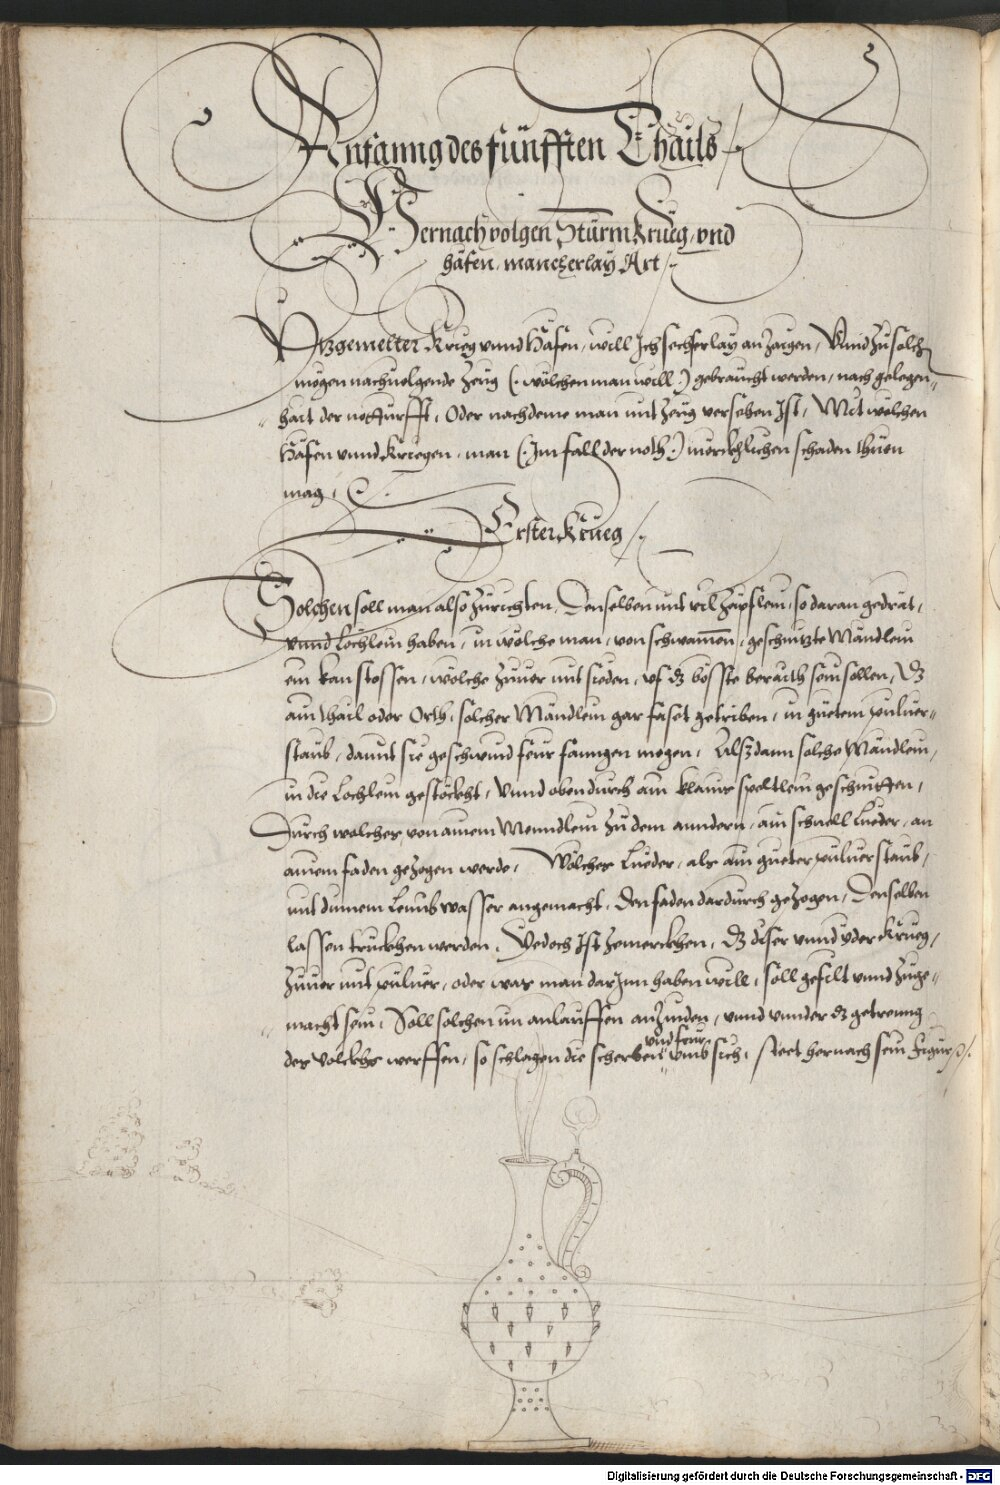 Anfanng des fünfften Thails
Hernach volgen Sturm Krueg, vnd
häfen, mancherlay Art
Ytzgemelter Krueg vnnd Häfen, will Ich secherlay anzaigen, Vnnd zu solchen
mögen nachuolgende Zeug (: wölchen man will :) gebraucht werden, nach gelegen=
hait der notturfft, Oder nachdeme man mit Zeug versehen Ist, Mit wölchen
Häfen vnnd Kriegen, man (: Im fall der noth :) mörckhlichen schaden thuen
mag,
Erster Krueg
Solchen soll man also zurichten, Denselben mit vil Zäpflein, so daran gedrät,
vnnd Löchlein haben, in wölche man, von schwammen, geschnitzte Mändlein
ein kan stossen, wölche zuuor mit sieden, vf dz böste beraith sein sollen, Dz
ain thail oder Orth, solcher Mändlein gar fasst getriben, in guetem puluer=
staub, damit sie geschwind feur fanngen mögen, Alszdann solche Mändlein,
in die Löchlein gestöckht, Vnnd oben durch ain klains speltlein geschnitten,
Durch wolches von ainem Menndlein zu dem anndern, ain schnell Lueder, an
ainem faden gezogen werde, Wölches Lueder, als ain gueter puluerstaub,
mit dinem Leimbwasser angemacht, den faden dardurch gezogen, Denselben
lassen truckhen werden, Yedoch Ist zemerckhen, Dz diser vnnd yder Krueg,
zuuor mit puluer, oder was man darJnn haben will, soll gefilt vnnd zuge=
macht sein, Soll solchen im anlauffen anzinden, vnnd vnnder dz getreung
des Volckhs werffen, so schlagen die scherben vnd feur vmb sich, steet hernach sein Figur
Digitalisierung gefördert durch die Deutsche Forschungsgemeinschaft - DFG